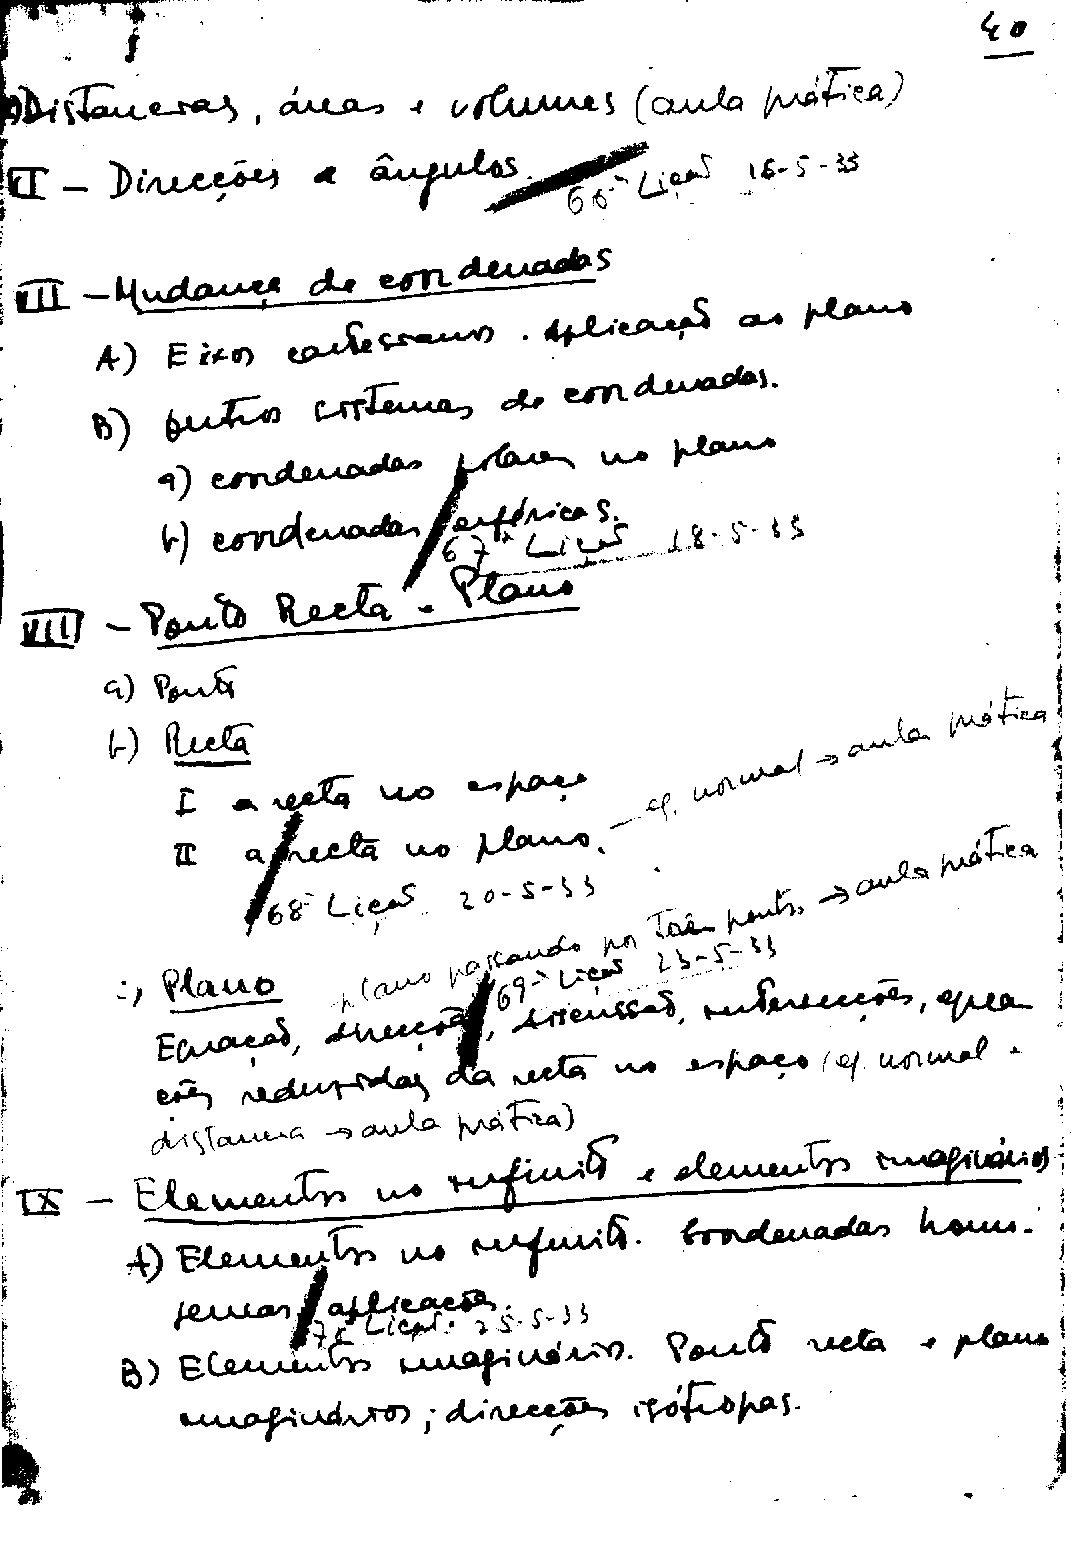 40
Distancias, áreas e volumes (aula prática)
II – Direcções e ângulos.
66ª Lição 16-5-33
VII – Mudança de coordenadas
A) Eixos cartesianos. Aplicação ao plano
B) Outros sistemas de coordenadas.
a) coordenadas polares no plano
b) coordenadas esféricas.
67ª Lição 18-5-33
VIII – Ponto Recta e Plano
a) Ponto
b) Recta
I a recta no espaço
II a recta no plano. – eq. normal → aula prática
68ª Lição 20-5-33
c) Plano plano passando por três pontos → aula prática
69ª Lição 23-5-33
Equação, direcções, discussão, intersecções, equa
ções reduzidas da recta no espaço (eq. normal e
distancia → aula prática)
IX – Elementos no infinito e elementos imaginários
A) Elementos no infinito. Coordenadas homo-
géneas, aplicações.
70ª Lição. 25-5-33
B) Elementos imaginários. Ponto recta e plano
imaginários; direcções isótropas.